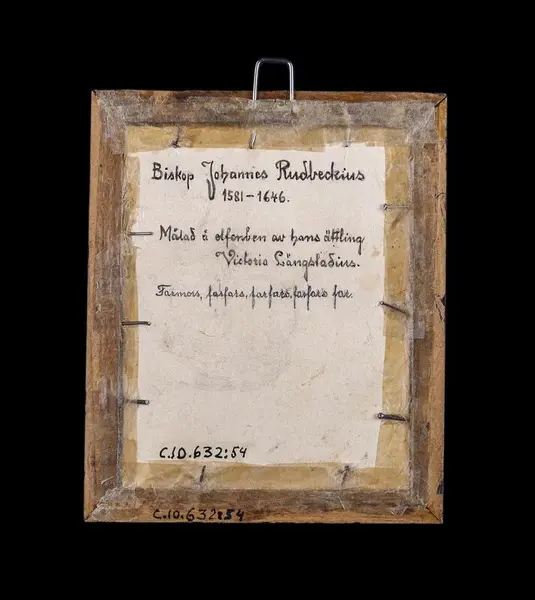 Biskop Johannes Rudbeckius
1581-1646.
Målad å elfenben av hans ättling
Victoria Långstadius.
Farmors, farfars, farfars, farfars far.
C.10.632:54
C.10.632:54